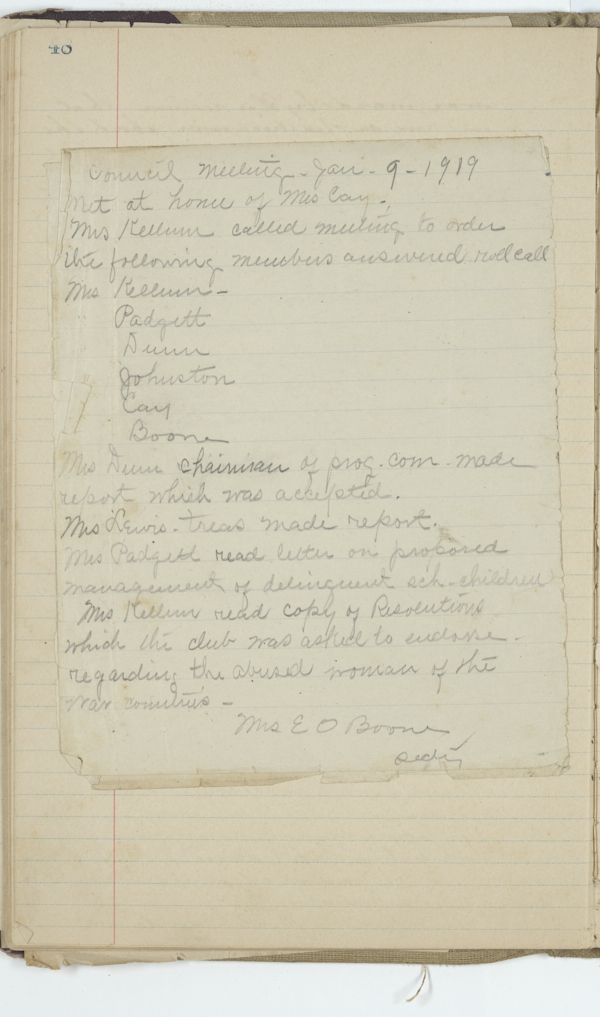 40
Council Meeting - Jan - 9 - 1919
Met at home of Mrs Cay.
Mrs Kellum called meeting to order
the following members answered roll call
Mrs Kellum -
Padgett
Dunn
Johnston
Cay
Boone
Mrs Dunn chairman of prog. com. made
report which was accepted.
Mrs Lewis - treas made report.
Mrs Padgett read letter on proposed
management of delinquent sch. children
Mrs Kellum read copy of Resolutions
which the club was asked to endorse -
regarding the abused woman of the
war countries -
Mrs E O Boone
Secty